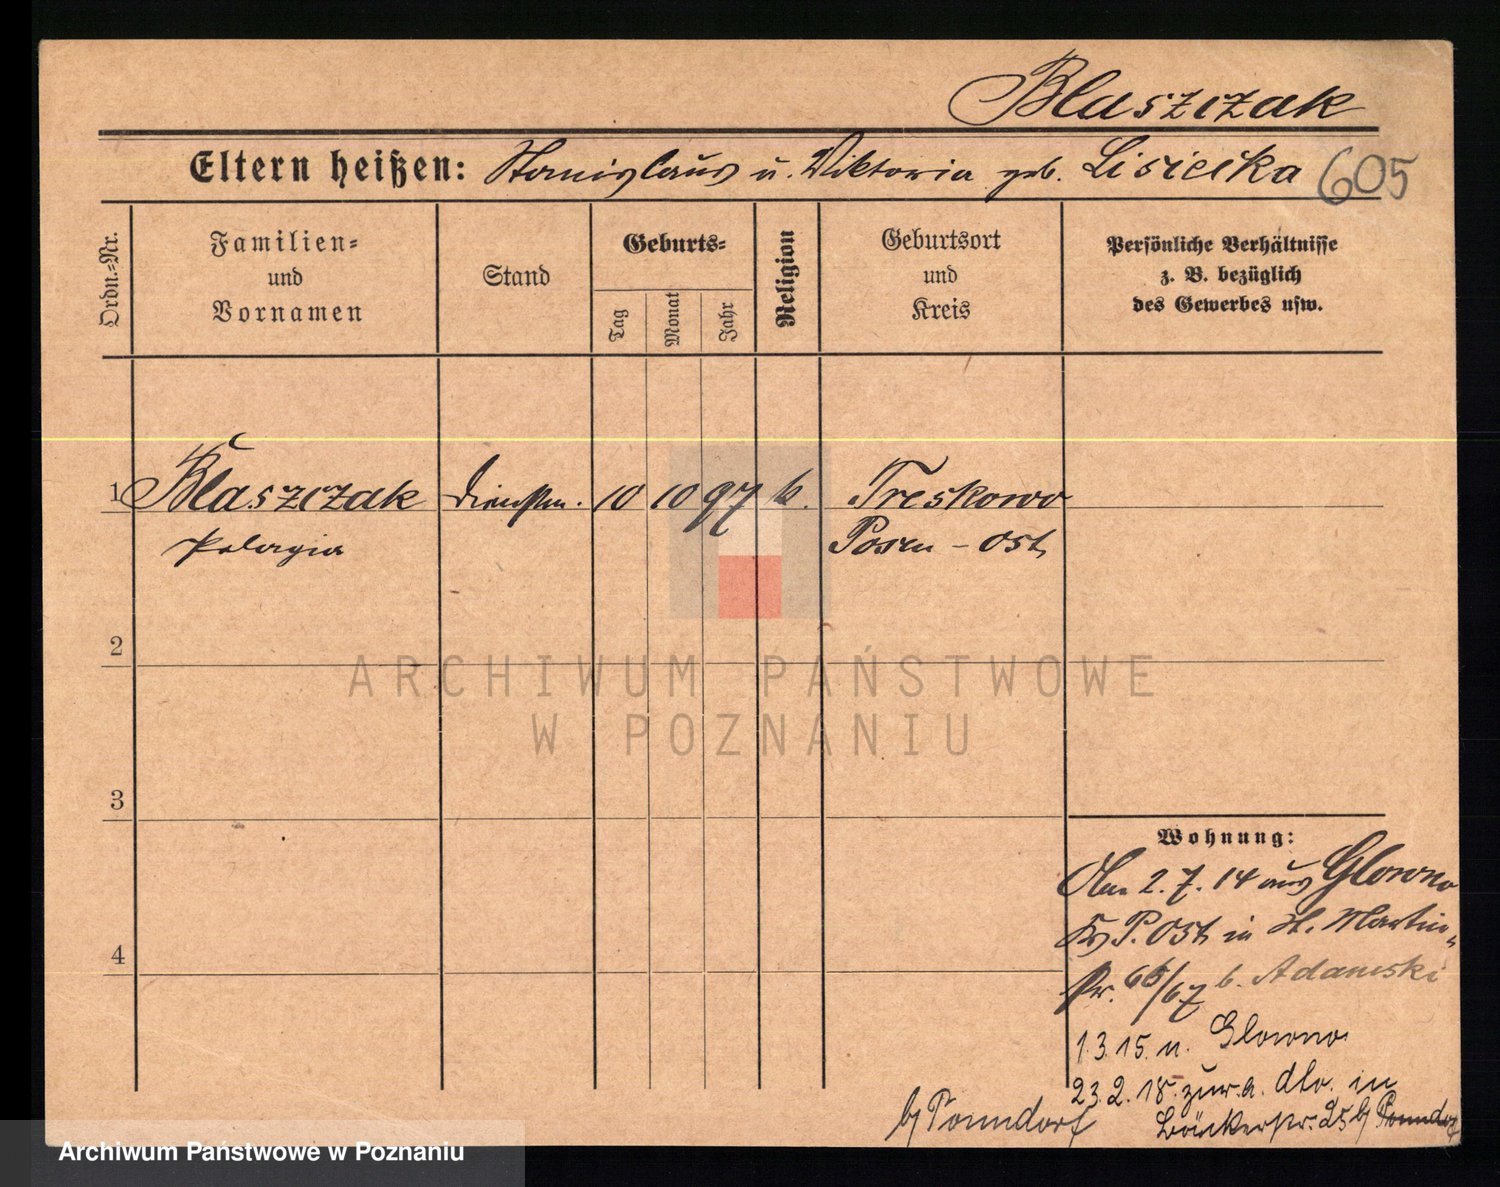 Blaszczak
Eltern heißen: Stanislaus u. Viktoria geb. Lisiecka 605
Ordn.-Nr.
Familien-
und
Vornamen
Stand
Geburts-
Tag
Monat
Jahr
Religion
Geburtsort
und
Kreis
Persönliche Verhältnisse
z. B. bezüglich
des Gewerbes usw.
1 Blaszczak Dienstm. 10 10 97 k. Treskowo
Pelagia Posen-Ost
2
ARCHIWUM PAŃSTWOWE
W POZNANIU
3
Wohnung:
2.7.14 aus Glowno
Krs P. Ost in St. Martin-
Str. 66/67 b. Adamski
1.3.15. n. Glowno
23.2.18. zur. a. dto. in
Bäckerstr. 25 bj Ponndorf
bj Ponndorf
4
Archiwum Państwowe w Poznaniu